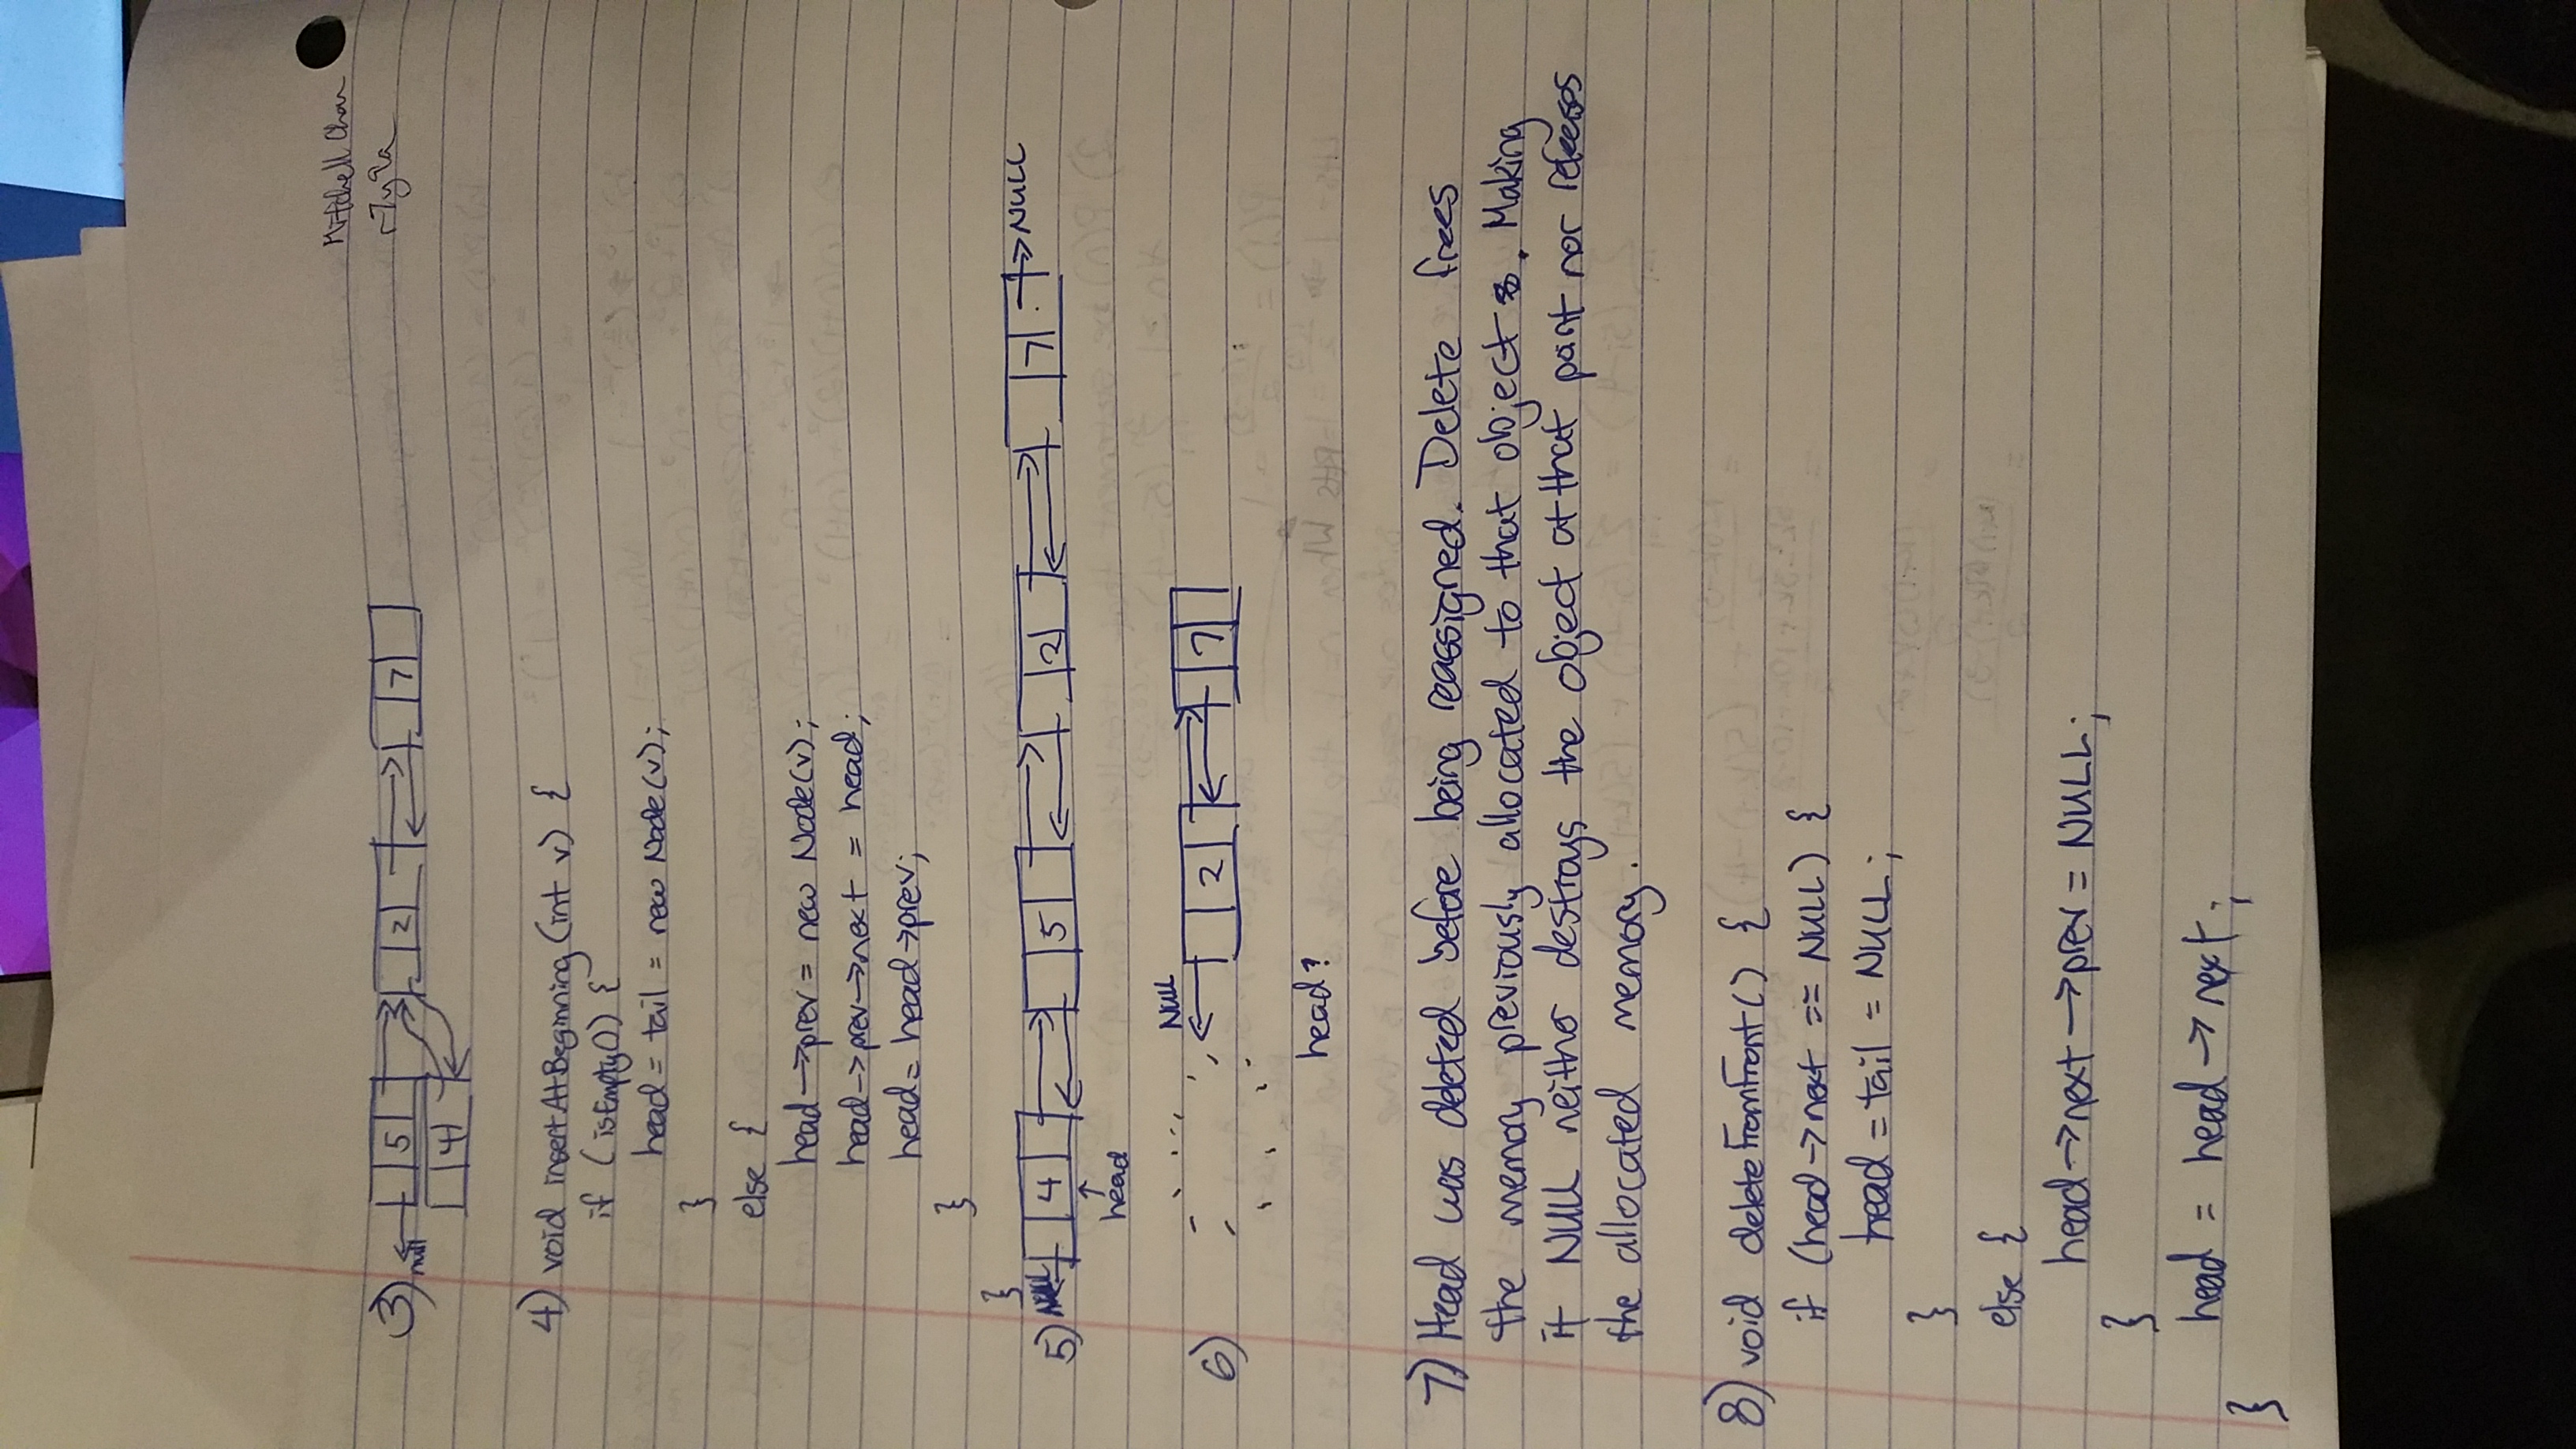 Mitchell Chan
r7y9a
3) null 5 2 7
4
4) void insertAtBeginning (int v) {
if (isEmpty()) {
head = tail = new Node(v);
}
else {
head->prev = new Node(v);
head->prev->next = head;
head = head->prev;
}
}
5) NULL 4 5 2 7 NULL
head
6) NULL 2 7
head?
7) Head was deleted before being reassigned. Delete frees
the memory previously allocated to that object. Making
it NULL neither destroys the object at that point nor releases
the allocated memory.
8) void deleteFromFront() {
if (head->next == NULL) {
head = tail = NULL;
}
else {
head->next->prev = NULL;
}
head = head->next;
}